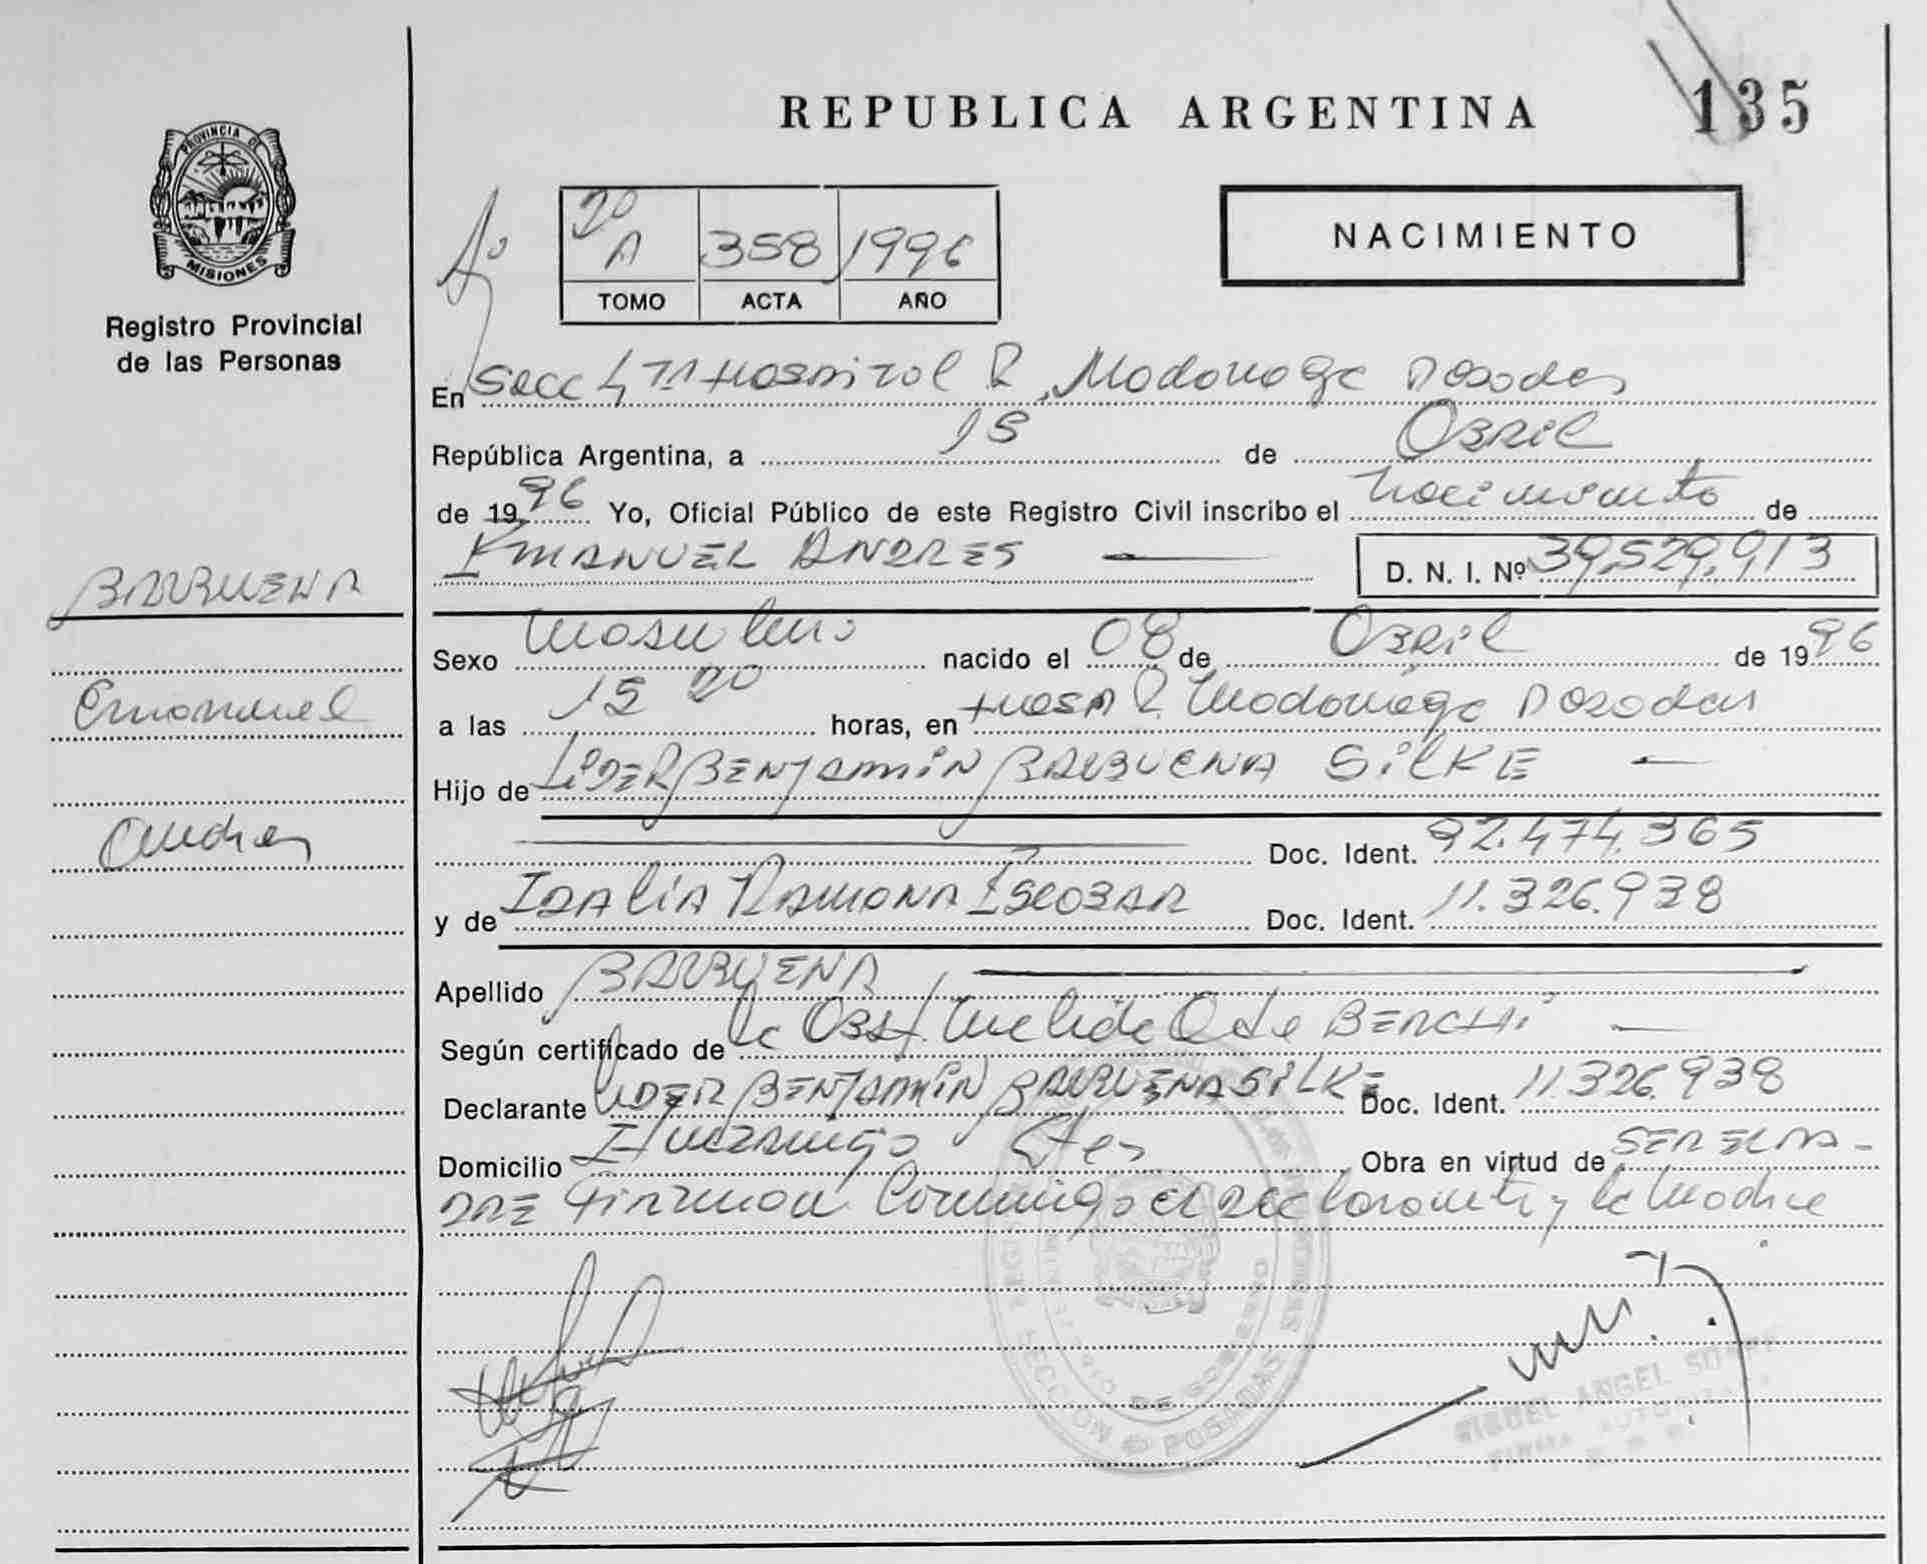 REPUBLICA ARGENTINA
135
PROVINCIA DE
MISIONES
Registro Provincial
de las Personas
20
A 358 1996
TOMO ACTA AÑO
NACIMIENTO
En Secc 4ª Hospital R. Madariaga Posadas
República Argentina, a 15 de Abril
de 1996 Yo, Oficial Público de este Registro Civil inscribo el nacimiento de
EMANUEL ANDRES D. N. I. Nº 39,529,913
BALBUENA
Emanuel
Andres
Sexo Masculino nacido el 08 de Abril de 1996
a las 15 20 horas, en Hosp R. Madariaga Posadas
Hijo de LiDER BENJAMiN BALBUENA SiLKE
Doc. Ident. 92.474.365
y de IDALiA RAMONA ESCOBAR Doc. Ident. 11.326.938
Apellido BALBUENA
Según certificado de la Obst. Melida BENCHi
Declarante LiDER BENJAMiN BALBUENA SiLKE Doc. Ident. 11.326.938
Domicilio Ituzaingo Ctes Obra en virtud de SER EL PA-
DRE Firman Conmigo el declarante y la Madre
SECCION POSADAS
MINISTERIO DE GOBIERNO
MIGUEL ANGEL
FIRMA AUTORIZADA